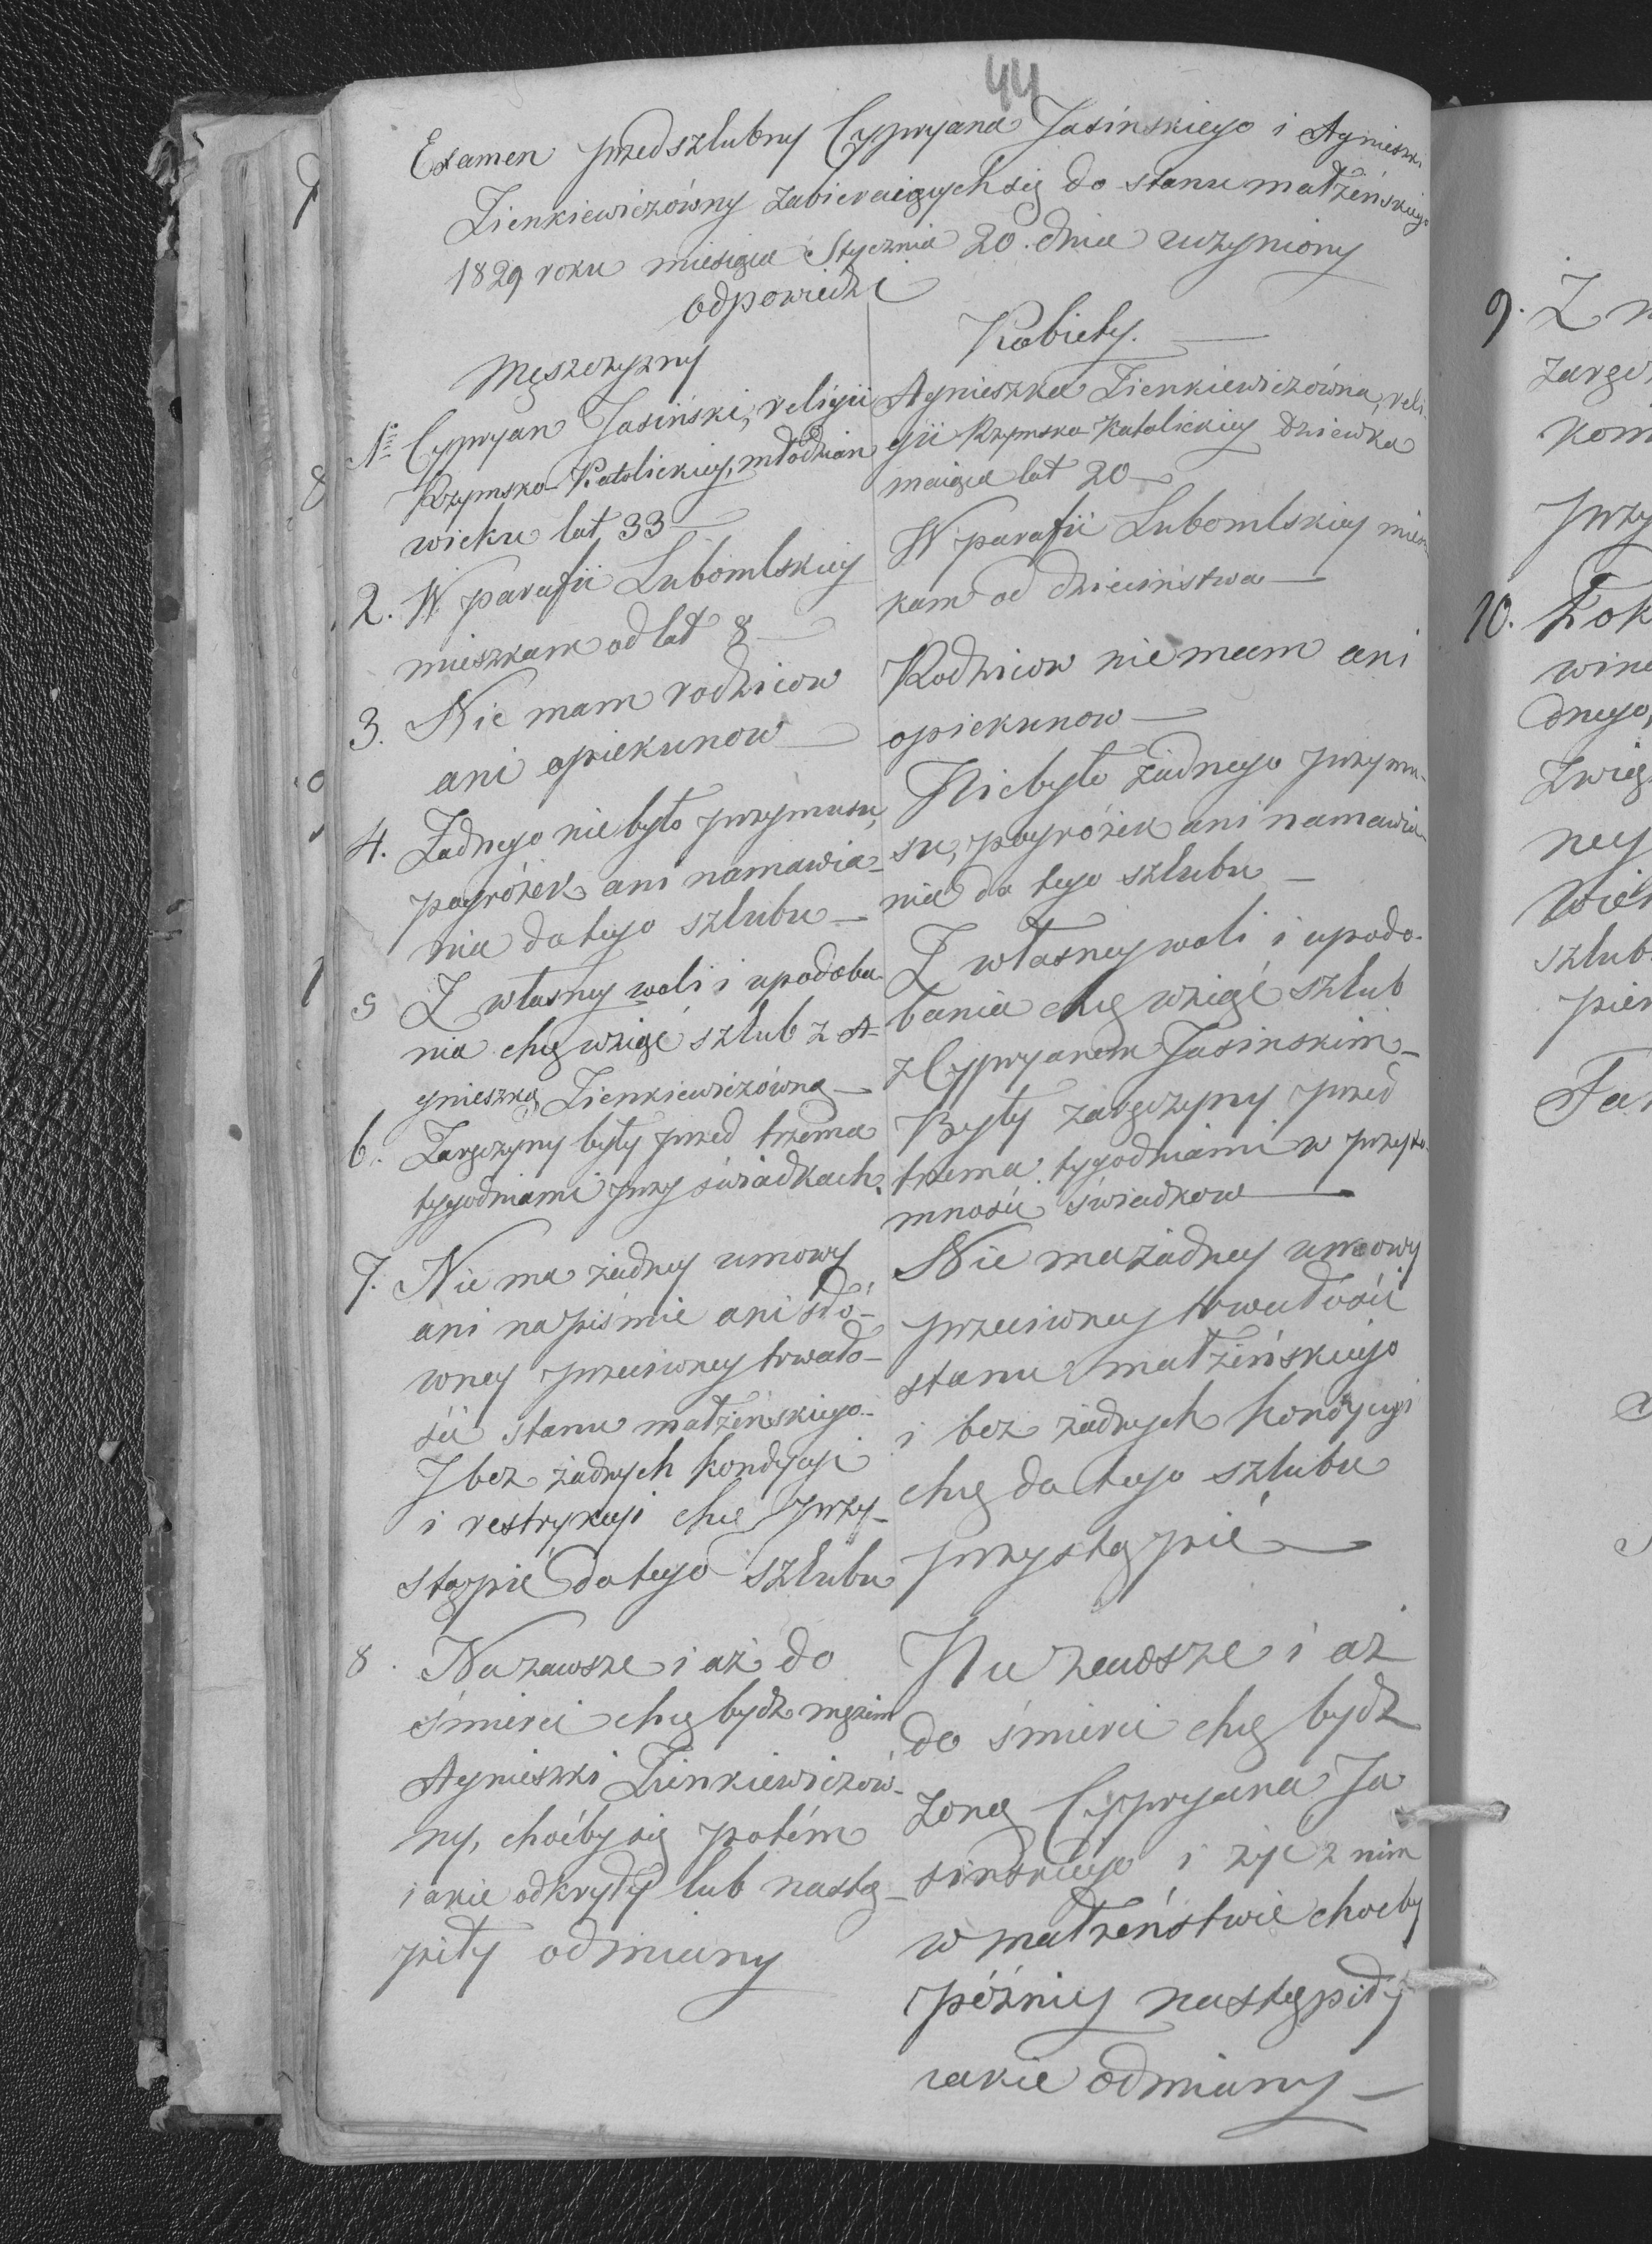 44
Examen przedszlubny Cypryana Jasinskiego i Agnieszki
Zienkiewiczówny zabieraiących się do stanu małżeńskiego
1829 roku miesiąca Stycznia 20. dnia uczyniony
odpowiedzi
Męszczyzny
Nº Cypryan Jasiński, religii
Rzymsko-Katolickiey, młodzian
wieku lat 33
2. W parafii Lubomlskiey
mieszkam od lat 8
3. Nie mam rodzicow
ani opiekunow
4. Żadnego nie było przymusu,
pogróżek ani namawia-
nia do tego szlubu
5 Z własney woli i upodoba
nia chcę wziąć szlub z A-
gnieszką Zienkiewiczówną
6. Zaręczyny były przed trzema
tygodniami przy świadkach.
7. Nie ma żadney umowy
ani na piśmie ani sło-
wney przeciwney trwało-
ści stanu małżeńskiego.
J bez żadnych kondycyi
i restrykcyi chcę przy-
stąpić do tego szlubu
8. Na zawsze i aż do
śmierci chcę bydź mężem
Agnieszki Zienkiewiczów-
ny, choćby się potém
iakie odkryły lub nastą-
piły odmiany
Kobiety.
Agnieszka Zienkiewiczówna, reli-
gii Rzymsko Katolickiey dziewka
maiąca lat 20
W parafii Lubomlskiey miesz
kam od dzieciństwa
Rodzicow nie mam ani
opiekunow
Niebyło żadnego przymu-
su, pogróżek ani namawia-
nia do tego szlubu
Z własney woli i upodo-
bania chcę wziąć szlub
z Cypryanem Jasinskim
Były zaręczyny przed
trzema tygodniami w przyto-
mności świadkow
Nie ma żadney umowy
przeciwney trwałości
stanu małżeńskiego
i bez żadnych kondycyi
chcę do tego szlubu
przystąpić
Na zawsze i aż
do śmierci chcę bydź
żoną Cypryana Ja
sinskiego i żyć z nim
w małżeństwie choćby
późniey nastąpiły
iakie odmiany
9. Z
10.